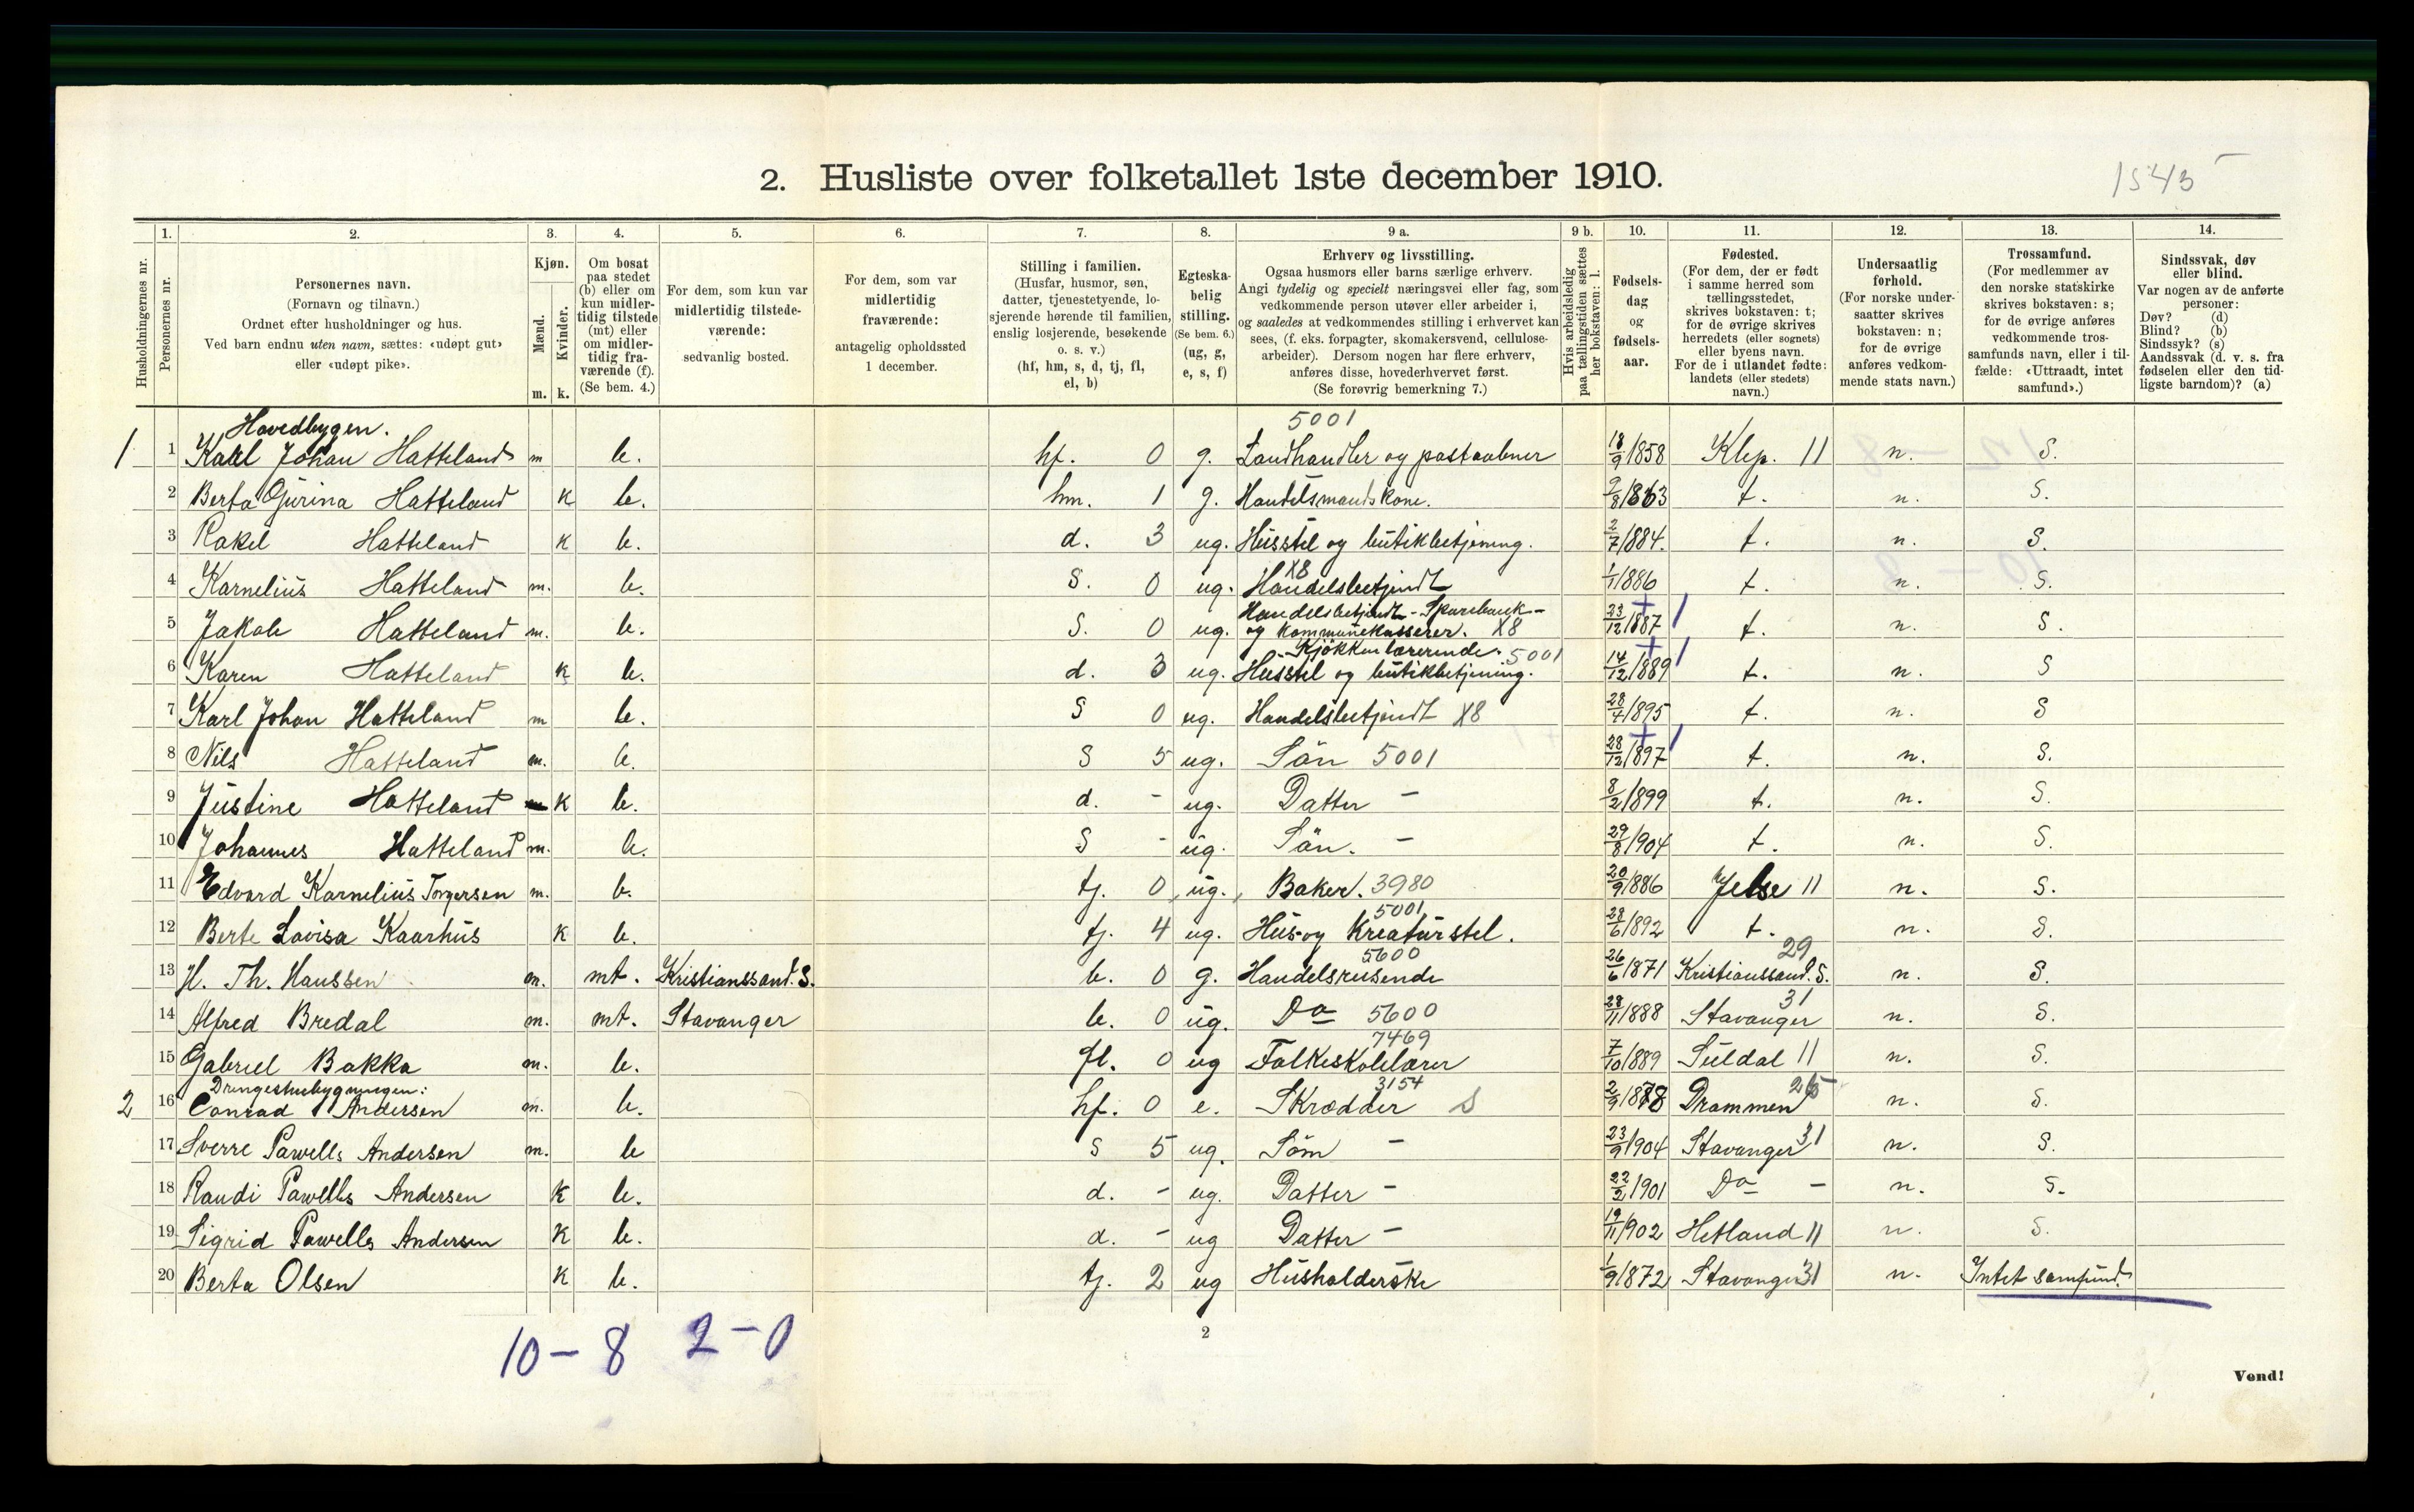 2. Husliste over folketallet 1ste december 1910.
1543
1. 2. 3. 4. 5. 6. 7. 8. 9 a. 9 b. 10. 11. 12. 13. 14.
Husholdningernes nr.
Personernes nr.
Personernes navn.
(Fornavn og tilnavn.)
Ordnet efter husholdninger og hus.
Ved barn endnu uten navn, sættes: «udøpt gut»
eller «udøpt pike».
Kjøn.
Mænd.
Kvinder.
m. k.
Om bosat
paa stedet
(b) eller om
kun midler-
tidig tilstede
(mt) eller
om midler-
tidig fra-
værende (f).
(Se bem. 4.)
For dem, som kun var
midlertidig tilstede-
værende:
sedvanlig bosted.
For dem, som var
midlertidig
fraværende:
antagelig opholdssted
1 december.
Stilling i familien.
(Husfar, husmor, søn,
datter, tjenestetyende, lo-
sjerende hørende til familien,
enslig losjerende, besøkende
o. s. v.)
(hf, hm, s, d, tj, fl,
el, b)
Egteska-
belig
stilling.
(Se bem. 6.)
(ug, g,
e, s, f)
Erhverv og livsstilling.
Ogsaa husmors eller barns særlige erhverv.
Angi tydelig og specielt næringsvei eller fag, som
vedkommende person utøver eller arbeider i,
og saaledes at vedkommendes stilling i erhvervet kan
sees, (f. eks. forpagter, skomakersvend, cellulose-
arbeider). Dersom nogen har flere erhverv,
anføres disse, hovederhvervet først.
(Se forøvrig bemerkning 7.)
Hvis arbeidsledig
paa tællingstiden sættes
her bokstaven: l.
Fødsels-
dag
og
fødsels-
aar.
Fødested.
(For dem, der er født
i samme herred som
tællingsstedet,
skrives bokstaven: t;
for de øvrige skrives
herredets (eller sognets)
eller byens navn.
For de i utlandet fødte:
landets (eller stedets)
navn.)
Undersaatlig
forhold.
(For norske under-
saatter skrives
bokstaven: n;
for de øvrige
anføres vedkom-
mende stats navn.)
Trossamfund.
(For medlemmer av
den norske statskirke
skrives bokstaven: s;
for de øvrige anføres
vedkommende tros-
samfunds navn, eller i til-
fælde: «Uttraadt, intet
samfund».)
Sindssvak, døv
eller blind.
Var nogen av de anførte
personer:
Døv? (d)
Blind? (b)
Sindssyk? (s)
Aandssvak (d. v. s. fra
fødselen eller den tid-
ligste barndom)? (a)
Hovedbygen. 5001
1 1 Karl Johan Hatteland m b. hf. 0 g. Landhandler og postaabner 18/9 1858 Klep. 11 n. S.
2 Berta Gurina Hatteland k b. hm. 1 g. Handelsmandskone. 9/8 1863 t. n. S.
3 Rakel Hatteland k b. d. 3 ug. Husstel og butikbetjening. 2/7 1884. t. n. S.
4 Karnelius Hatteland m. b. S. 0 ug. Handelsbetjendt X8 1/1 1886 t. n. S.
5 Jakob Hatteland m. b. S. 0 ug. Handelsbetjendt - Sparebank- og kommunekasserer. X8 23/12 1887 t. n. S.
6 Karen Hatteland k b. d. 3 ug. Kjøkkenlærerinde. 5001 Husstel og butikbetjening. 14/12 1889 t. n. S
7 Karl Johan Hatteland m b. S 0 ug. Handelsbetjendt X8 28/4 1895 t. n. S
8 Nils Hatteland m. b. S 5 ug. Sön 5001 28/12 1897 t. n. S.
9 Justine Hatteland k b. d. - ug. Datter - 8/2 1899 t. n. S.
10 Johannes Hatteland m. b. S - ug. Sön. - 29/8 1904 t. n. S.
11 Edvard Karnelius Torgersen m. b. tj. 0 ug. Baker. 3980 20/9 1886 Jelse 11 n. S.
12 Berte Lovisa Kaarhus k b. tj. 4 ug. Hus- og Kreaturstel. 5001 28/6 1892 t. n. S.
13 H. Th. Hanssen m. mt. Kristianssand. S. b. 0 g. Handelsreisende 5600 26/6 1871 Kristianssand. S. 29 n. S.
14 Alfred Bredal m. mt. Stavanger b. 0 ug. Do 5600 28/11 1888 Stavanger 31 n. S.
15 Gabriel Bakka m. b. fl. 0 ug Folkeskolelærer 7469 7/10 1889 Suldal 11 n. S.
Drengestuebygningen:
2 16 Conrad Andersen m. b. hf. 0 e. Skrædder 3154 S 2/9 1878 Drammen 25 n. S.
17 Sverre Pawells Andersen m. b S 5 ug. Söm - 23/9 1904 Stavanger 31 n. S.
18 Randi Pawells Andersen k b. d. - ug. Datter - 22/2 1901 Do - n. S.
19 Sigrid Pawells Andersen k b. d. - ug Datter - 19/11 1902 Hetland 11 n. S.
20 Berta Olsen k b. tj. 2 ug Husholderske 1/9 1872 Stavanger 31 n. Intet samfund.
10 - 8 2 - 0
2
Vend!